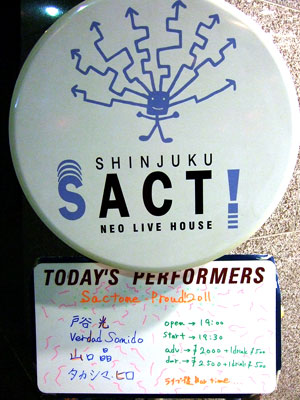 SHINJUKU
SACT!
NEO LIVE HOUSE
TODAY'S PERFORMERS
Sactone Proud 2011
戸谷 光
Verdad Somido
山口 晶
タカシマ ヒロ
open → 19:00
start → 19:30
adv → ¥2000 + 1drink ¥500
dor → ¥2500 + 1drink ¥500
ライブ後 Bar time...